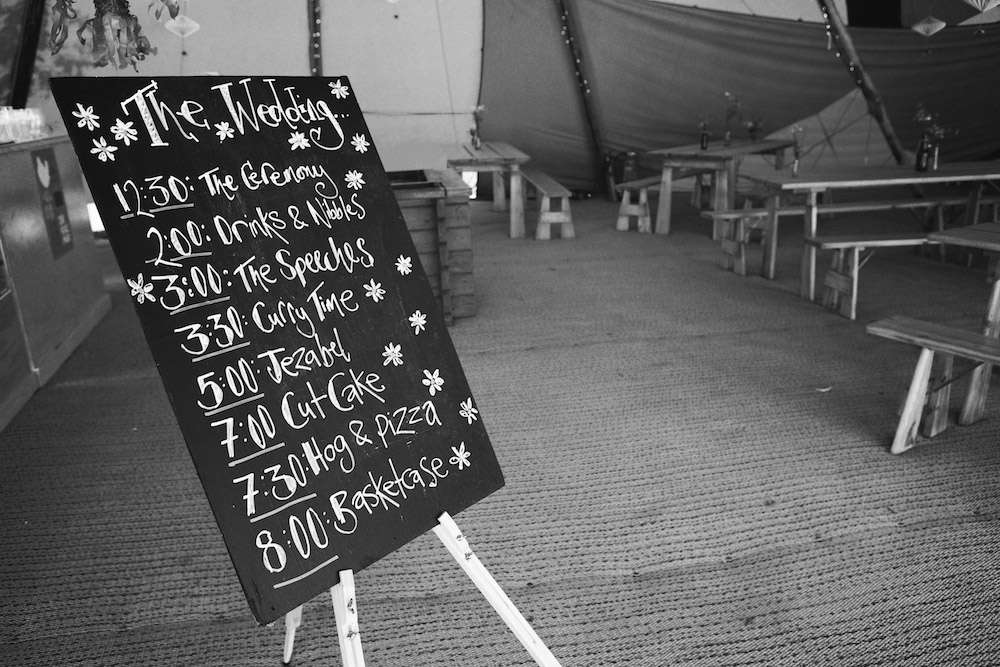 The Wedding...
12:30: The Ceremony
2:00: Drinks & Nibbles
3:00: The Speeches
3:30: Curry Time
5:00: Jezabel
7:00 Cut Cake
7:30: Hog & pizza
8:00: Basketcase